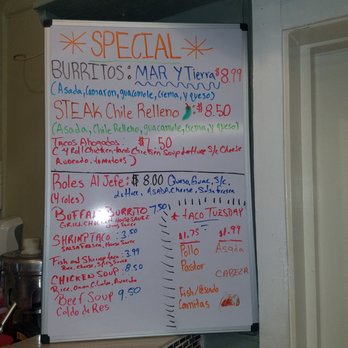 SPECIAL
BURRITOS: MAR Y Tierra $8.99
(Asada, Camaron, guacamole, crema, y queso)
STEAK Chile Relleno $8.50
(Asada, Chile Relleno, guacamole, crema, y queso)
Tacos Ahogados: $7.50
(4 Roll Chicken tacos Chicken Soup lettuce S/c Cheese
Avocado. tomatoes)
Roles Al Jefe: $8.00 Queso, Guac, S/c,
(4 roles) lettuce, ASADA, Cheese, Salsa Fresca
BUFFALO BURRITO 7.50
GRILL CHICKEN HOUSE SAUCE
SHRIMP TACO: 3.50
SALSA FRESCA, House Sauce
Fish and Shrimp taco: 3.99
Rice, cheese, Spicy Sauce
CHICKEN SOUP 8.50
Rice, Onion, Cilantro, Avocado
Beef Soup 9.50
Caldo de Res
TACO TUESDAY
$1.75 $1.99
Pollo Asada
Pastor
CABEZA
Fish/Pescado
Carnitas